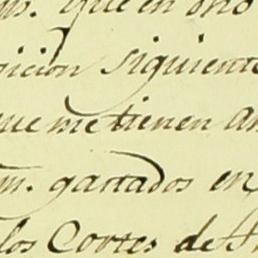 que en otro
sicion siguiente
que me tienen an
m. gastados en
los Cortes de